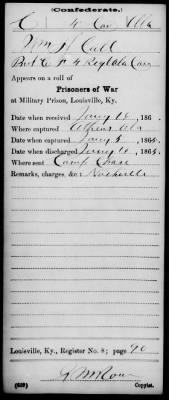 (Confederate.)
C 4 Cav Ala
Wm H Call
Pvt Co F 4 Reg Ala Cav
Appears on a roll of
Prisoners of War
at Military Prison, Louisville, Ky.
Date when received Jany 15, 186 .
Where captured Ala
Date when captured Jany 8, 1865.
Date when discharged Jany 16, 1865.
Where sent Camp Chase
Remarks, charges, &c: Nashville
Louisville, Ky., Register No. 8; page 90
(639) Copyist.